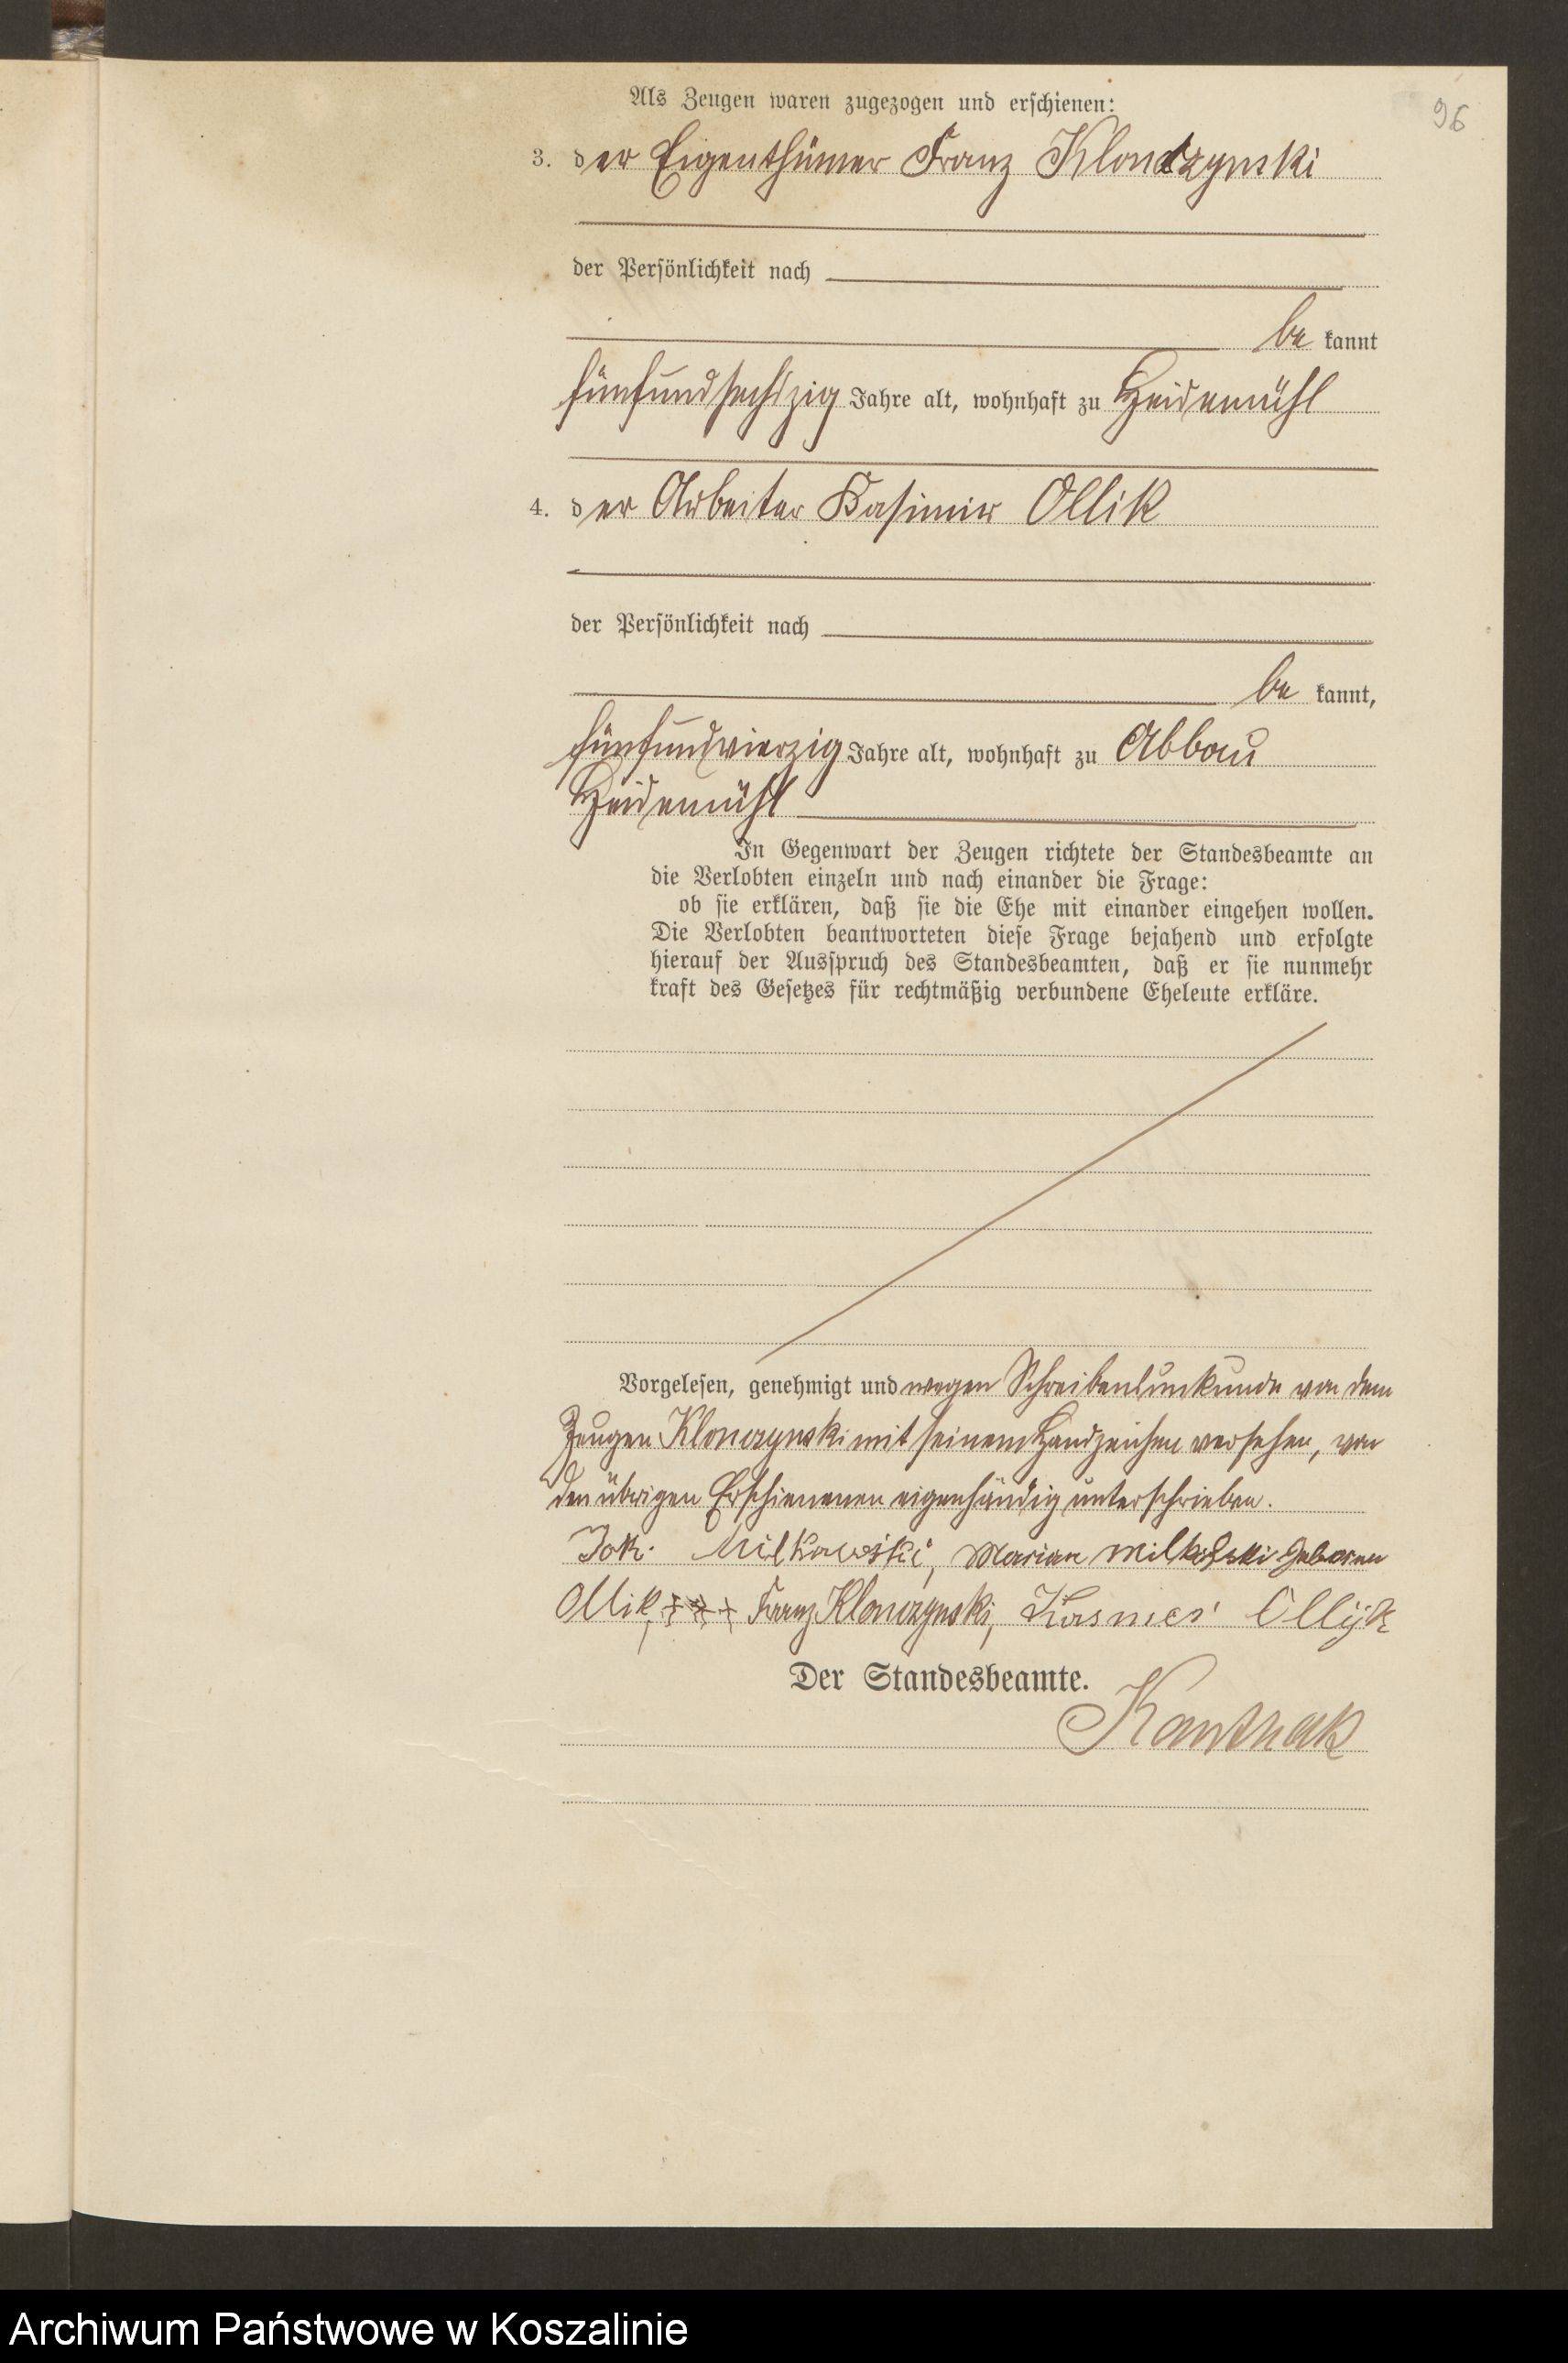 96
Als Zeugen waren zugezogen und erschienen:
3. der Eigenthümer Franz Klonczynski
der Persönlichkeit nach
be kannt
fünfundsechszig Jahre alt, wohnhaft zu Heidemühl
4. der Arbeiter Kasimir Ollik
der Persönlichkeit nach
be kannt,
fünfundvierzig Jahre alt, wohnhaft zu Abbau
Heidemühl
In Gegenwart der Zeugen richtete der Standesbeamte an
die Verlobten einzeln und nach einander die Frage:
ob sie erklären, daß sie die Ehe mit einander eingehen wollen.
Die Verlobten beantworteten diese Frage bejahend und erfolgte
hierauf der Ausspruch des Standesbeamten, daß er sie nunmehr
kraft des Gesetzes für rechtmäßig verbundene Eheleute erkläre.
Vorgelesen, genehmigt und wegen Schreibensunkunde von dem
Zeugen Klonczynski mit seinem Handzeichen versehen, von
den übrigen Erschienenen eigenhändig unterschrieben.
Milkowski, Marian Milkofski geboren
Ollik, +++ Franz Klonczynski, Kasmer Ollijk
Der Standesbeamte.
Archiwum Państwowe w Koszalinie